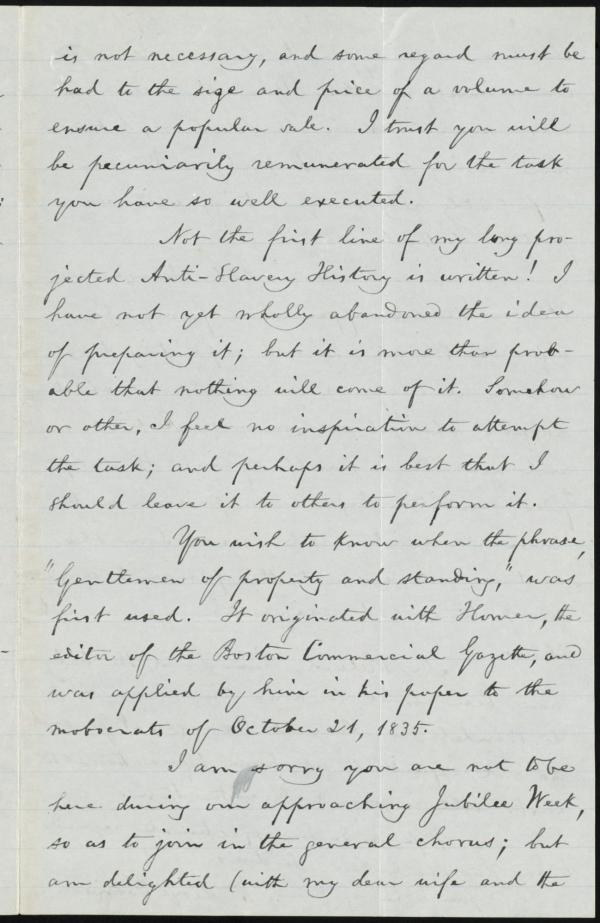 is not necessary, and some regard must be
had to the size and price of a volume to
ensure a popular sale. I trust you will
be pecuniarily remunerated for the task
you have so well executed.
Not the first line of my long pro-
jected Anti-Slavery History is written! I
have not yet wholly abandoned the idea
of preparing it; but it is more than prob-
able that nothing will come of it. Somehow
or other, I feel no inspiration to attempt
the task; and perhaps it is best that I
should leave it to others to perform it.
You wish to know when the phrase,
"Gentlemen of property and standing," was
first used. It originated with Homer, the
editor of the Boston Commercial Gazette, and
was applied by him in his paper to the
mobocrats of October 21, 1835.
I am sorry you are not to be
here during our approaching Jubilee Week,
so as to join in the general chorus; but
am delighted (with my dear wife and the